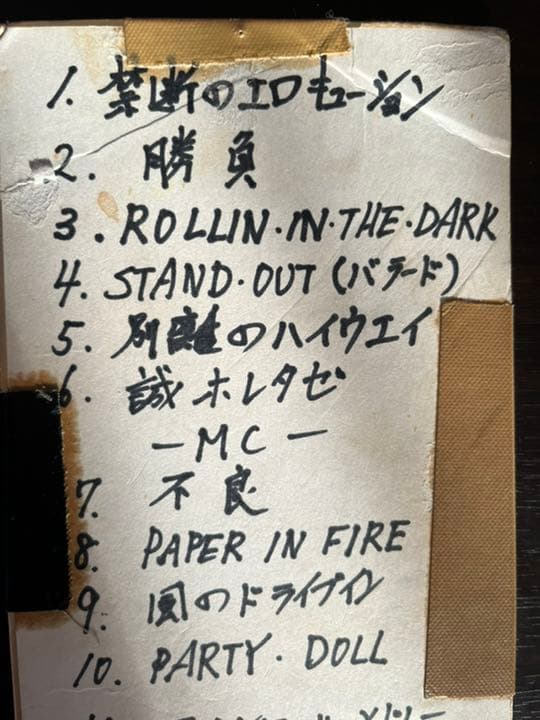 1. 禁断のエロキューション
2. 勝負
3. ROLLIN・IN・THE・DARK
4. STAND・OUT (バラード)
5. 別離のハイウエイ
6. 誠ホレタゼ
—MC—
7. 不良
8. PAPER IN FIRE
9. 風のドライブイン
10. PARTY・DOLL